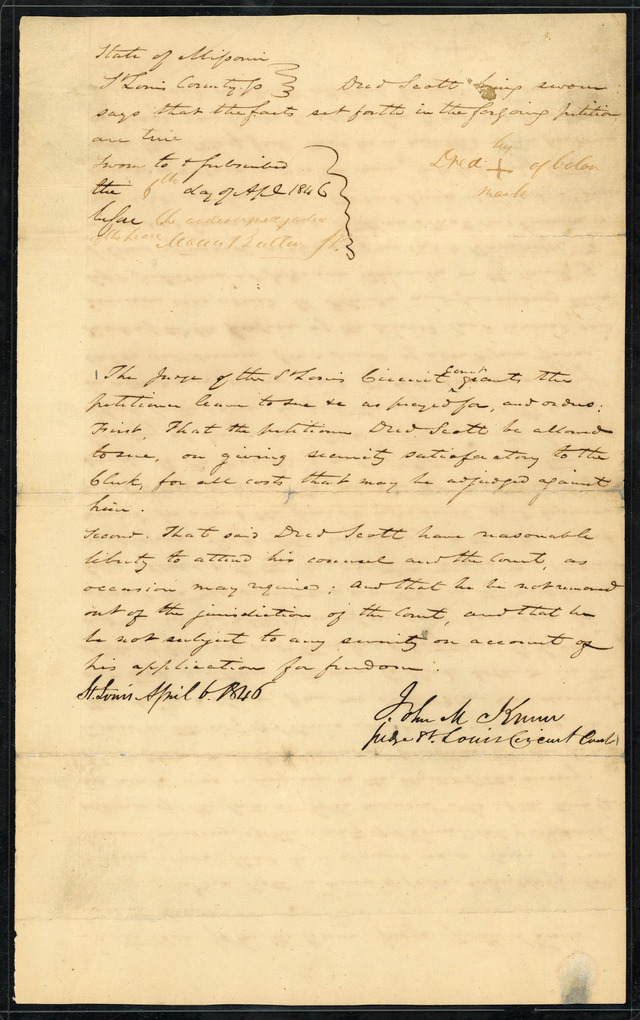 State of Missouri
St Louis County ss Dred Scott being sworn
says that the facts set forth in the forgoing petition
are true
Sworn to & subscribed
the 6th day of Apl 1846
before the undersigned justice
of the peace
his
Dred + of Color
mark
The Judge of the St Louis Circuit Court grants the
petitioner leave to sue &c as prayed for, and orders:
First, That the petitioner Dred Scott be allowed
to sue, on giving security satisfactory to the
Clerk, for all costs that may be adjudged against
him.
Second. That said Dred Scott have reasonable
liberty to attend his counsel and the Court, as
occasion may require; and that he be not removed
out of the jurisdiction of the Court, and that he
be not subject to any severity on account of
his application for freedom.
St. Louis April 6. 1846
John M Krum
Judge St. Louis Circuit Court